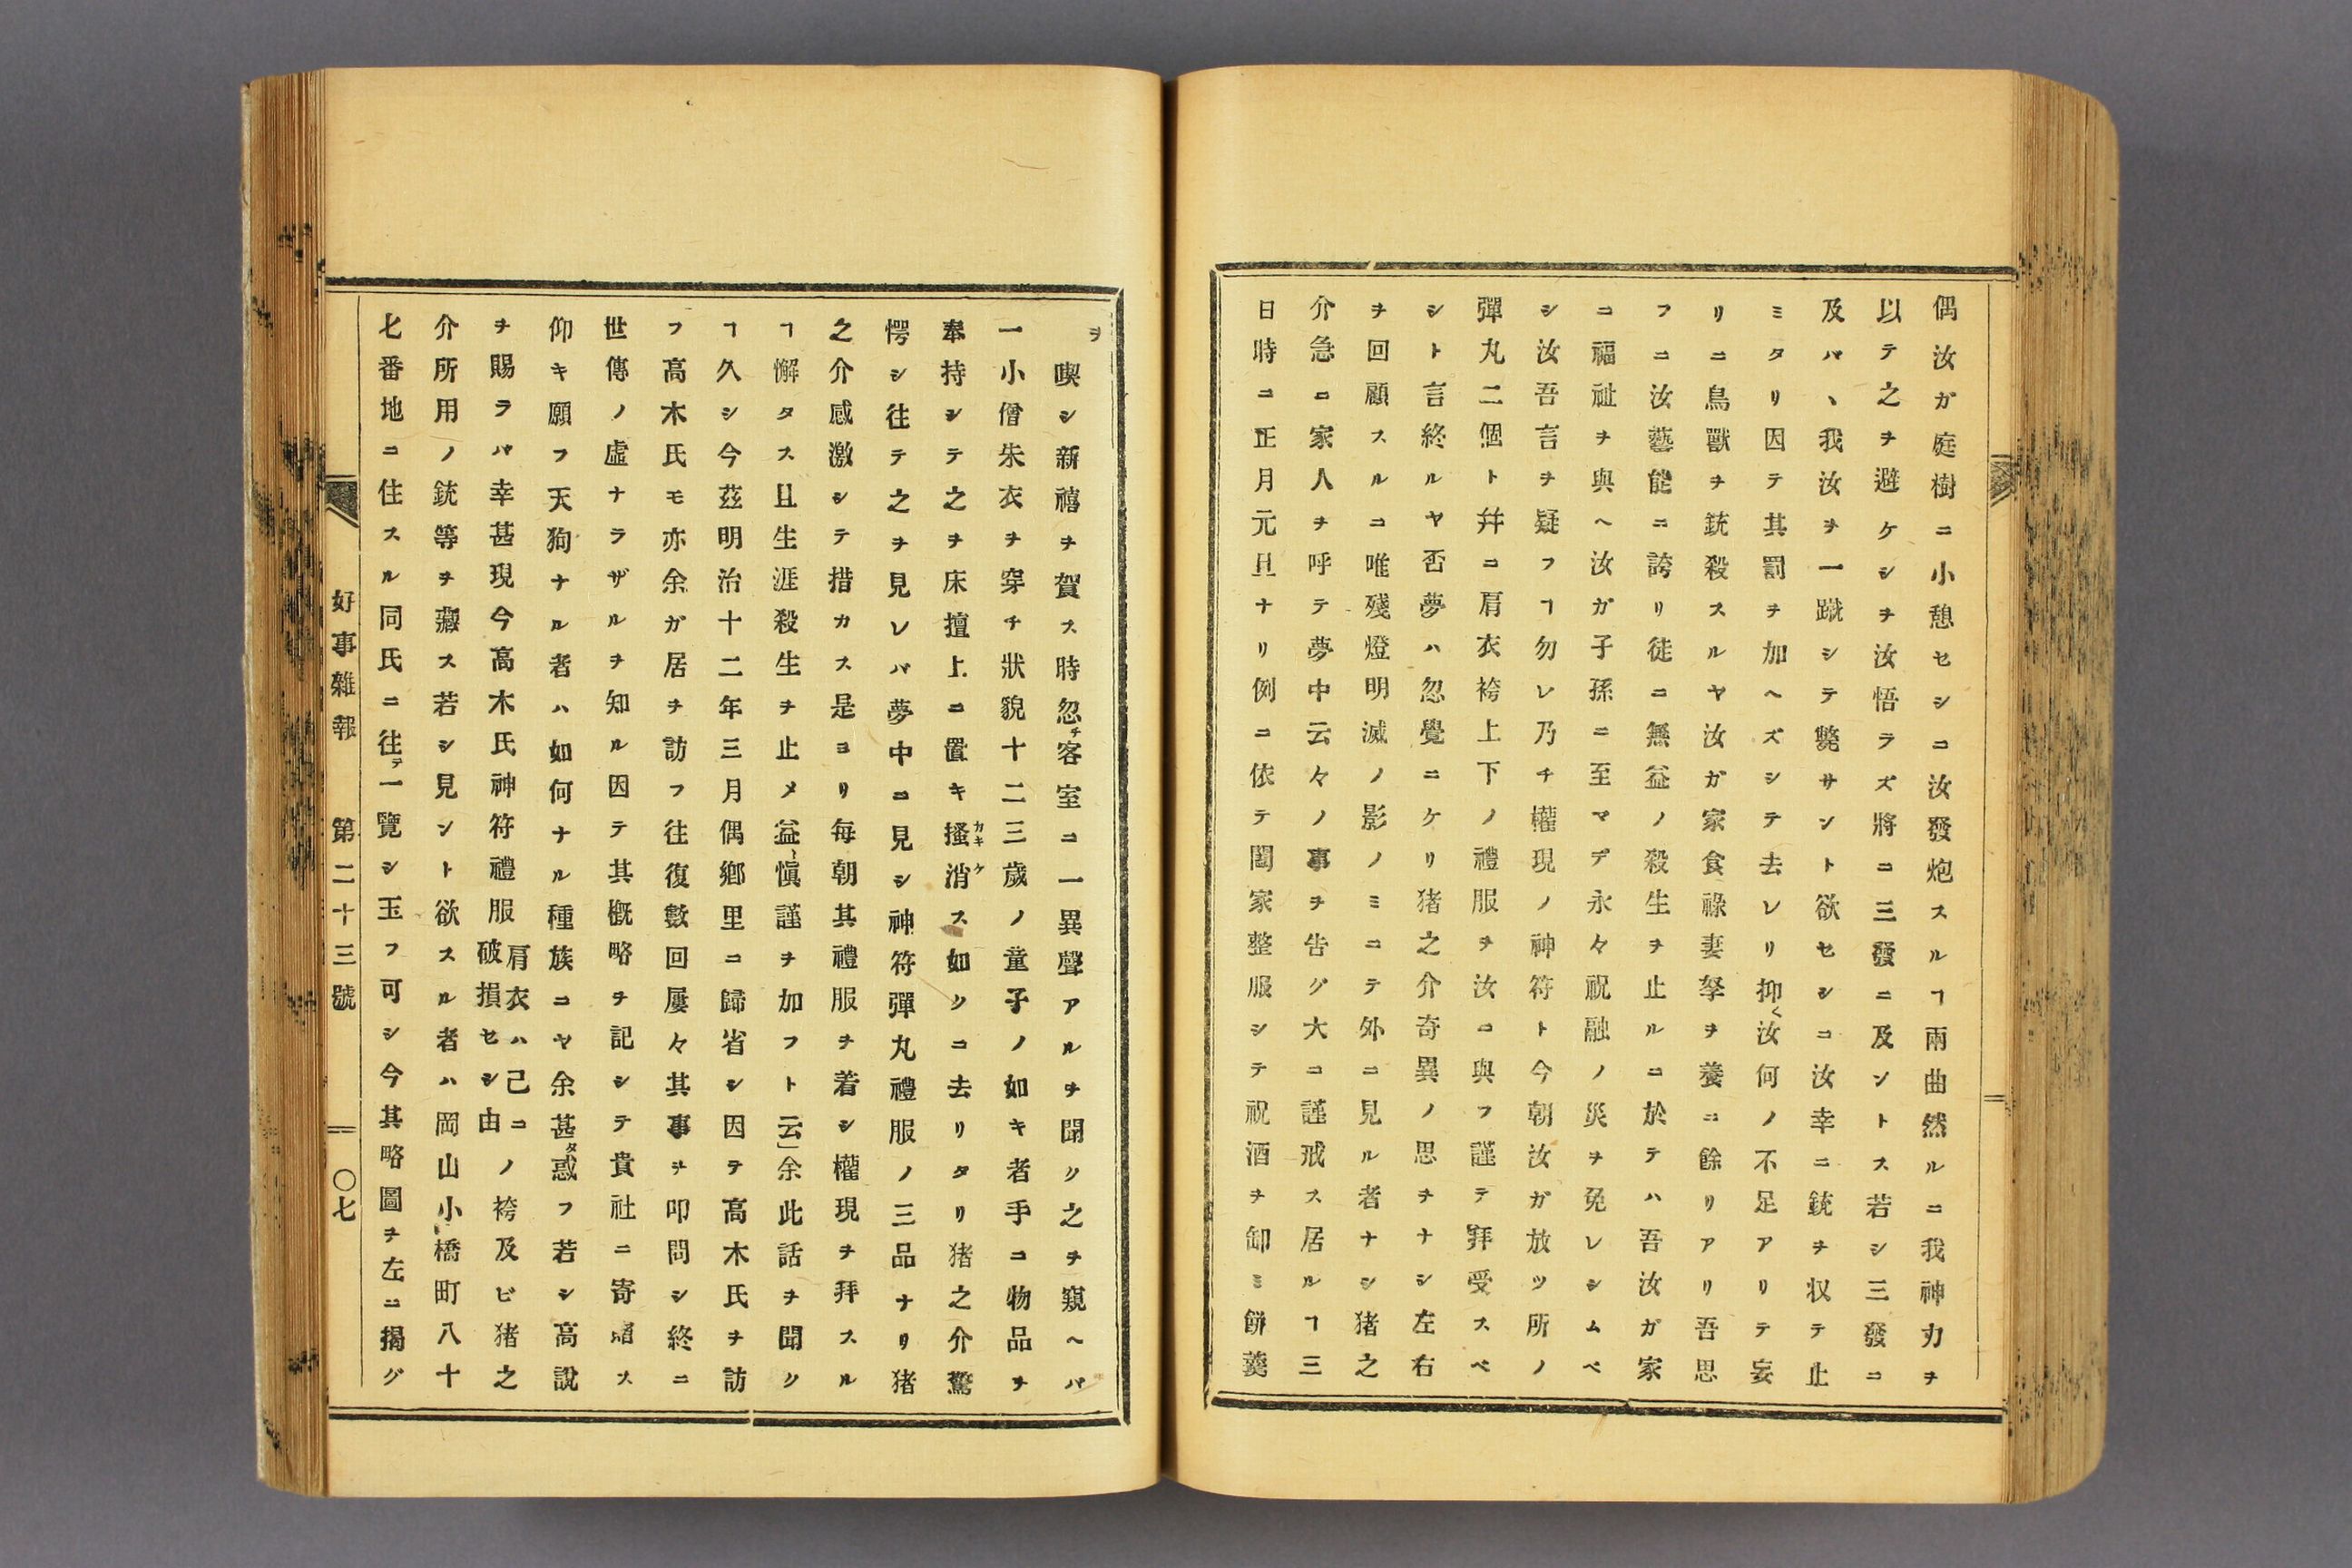 偶汝ガ庭樹ニ小憩セシニ汝發炮スルヿ兩曲然ルニ我神力ヲ
以テ之ヲ避ケシヲ汝悟ラズ將ニ三發ニ及ントス若シ三發ニ
及バヽ我汝ヲ一蹴シテ斃サント欲セシニ汝幸ニ銃ヲ収テ止
ミタリ因テ其罰ヲ加ヘズシテ去レリ抑〱汝何ノ不足アリテ妄
リニ鳥獸ヲ銃殺スルヤ汝ガ家食祿妻孥ヲ養ニ餘リアリ吾思
フニ汝藝能ニ誇リ徒ニ無益ノ殺生ヲ止ルニ於テハ吾汝ガ家
ニ福祉ヲ與ヘ汝ガ子孫ニ至マデ永々祝融ノ災ヲ免レシムベ
シ汝吾言ヲ疑フヿ勿レ乃チ權現ノ神符ト今朝汝ガ放ツ所ノ
彈丸二個ト幷ニ肩衣袴上下ノ禮服ヲ汝ニ與フ謹テ拜受スベ
シト言終ルヤ否夢ハ忽覺ニケリ猪之介奇異ノ思ヲナシ左右
ヲ回顧スルニ唯殘燈明滅ノ影ノミニテ外ニ見ル者ナシ猪之
介急ニ家人ヲ呼テ夢中云々ノ事ヲ告グ大ニ謹戒ス居ルヿ三
日時ニ正月元旦ナリ例ニ依テ闔家整服シテ祝酒ヲ卸ミ餅羹
ヲ喫シ新禧ヲ賀ス時忽チ客室ニ一異聲アルヲ聞ク之ヲ窺ヘバ
一小僧朱衣ヲ穿チ狀貌十二三歳ノ童子ノ如キ者手ニ物品ヲ
奉持シテ之ヲ床擅上ニ置キ搔消カキケス如クニ去リタリ猪之介驚
愕シ往テ之ヲ見レバ夢中ニ見シ神符彈丸禮服ノ三品ナリ猪
之介感激シテ措カス是ヨリ毎朝其禮服ヲ着シ權現ヲ拜スル
ヿ懈タス且生涯殺生ヲ止メ益〻愼謹ヲ加フト云」余此話ヲ聞ク
ヿ久シ今茲明治十二年三月偶鄕里ニ歸省シ因テ高木氏ヲ訪
フ高木氏モ亦余ガ居ヲ訪フ往復數回屢々其事ヲ叩問シ終ニ
世傳ノ虛ナラザルヲ知ル因テ其概略ヲ記シテ貴社ニ寄ス
仰キ願フ天狗ナル者ハ如何ナル種族ニヤ余甚タ惑フ若シ高說
ヲ賜ラバ幸甚現今高木氏神符禮服肩衣ハ己ニ破損セシ由ノ袴及ビ猪之
介所用ノ銃等ヲ藏ス若シ見ント欲スル者ハ岡山小橋町八十
七番地ニ住スル同氏ニ往テ一覽シ玉フ可シ今其略圖ヲ左ニ揭グ
好事雜報　第二十三號　〇七